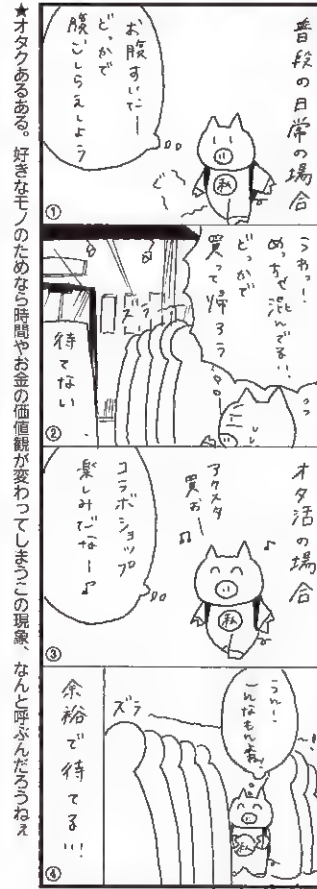 普段の日常の場合
お腹すいたー
どっかで
腹ごしらえしよう
私
ぐ～
①
うわっ!
めっちゃ混んでる!!
どっかで
買って帰ろう
ズラ
待てない
②
オタ活の場合
アクスタ
買おー♫
♪
コラボショップ
楽しみだなー♪
私
③
うん!
こんなもんよね
ズラ
私
余裕で待てる!!!
④
★オタクあるある。好きなモノのためなら時間やお金の価値観が変わってしまうこの現象、なんと呼ぶんだろうねぇ